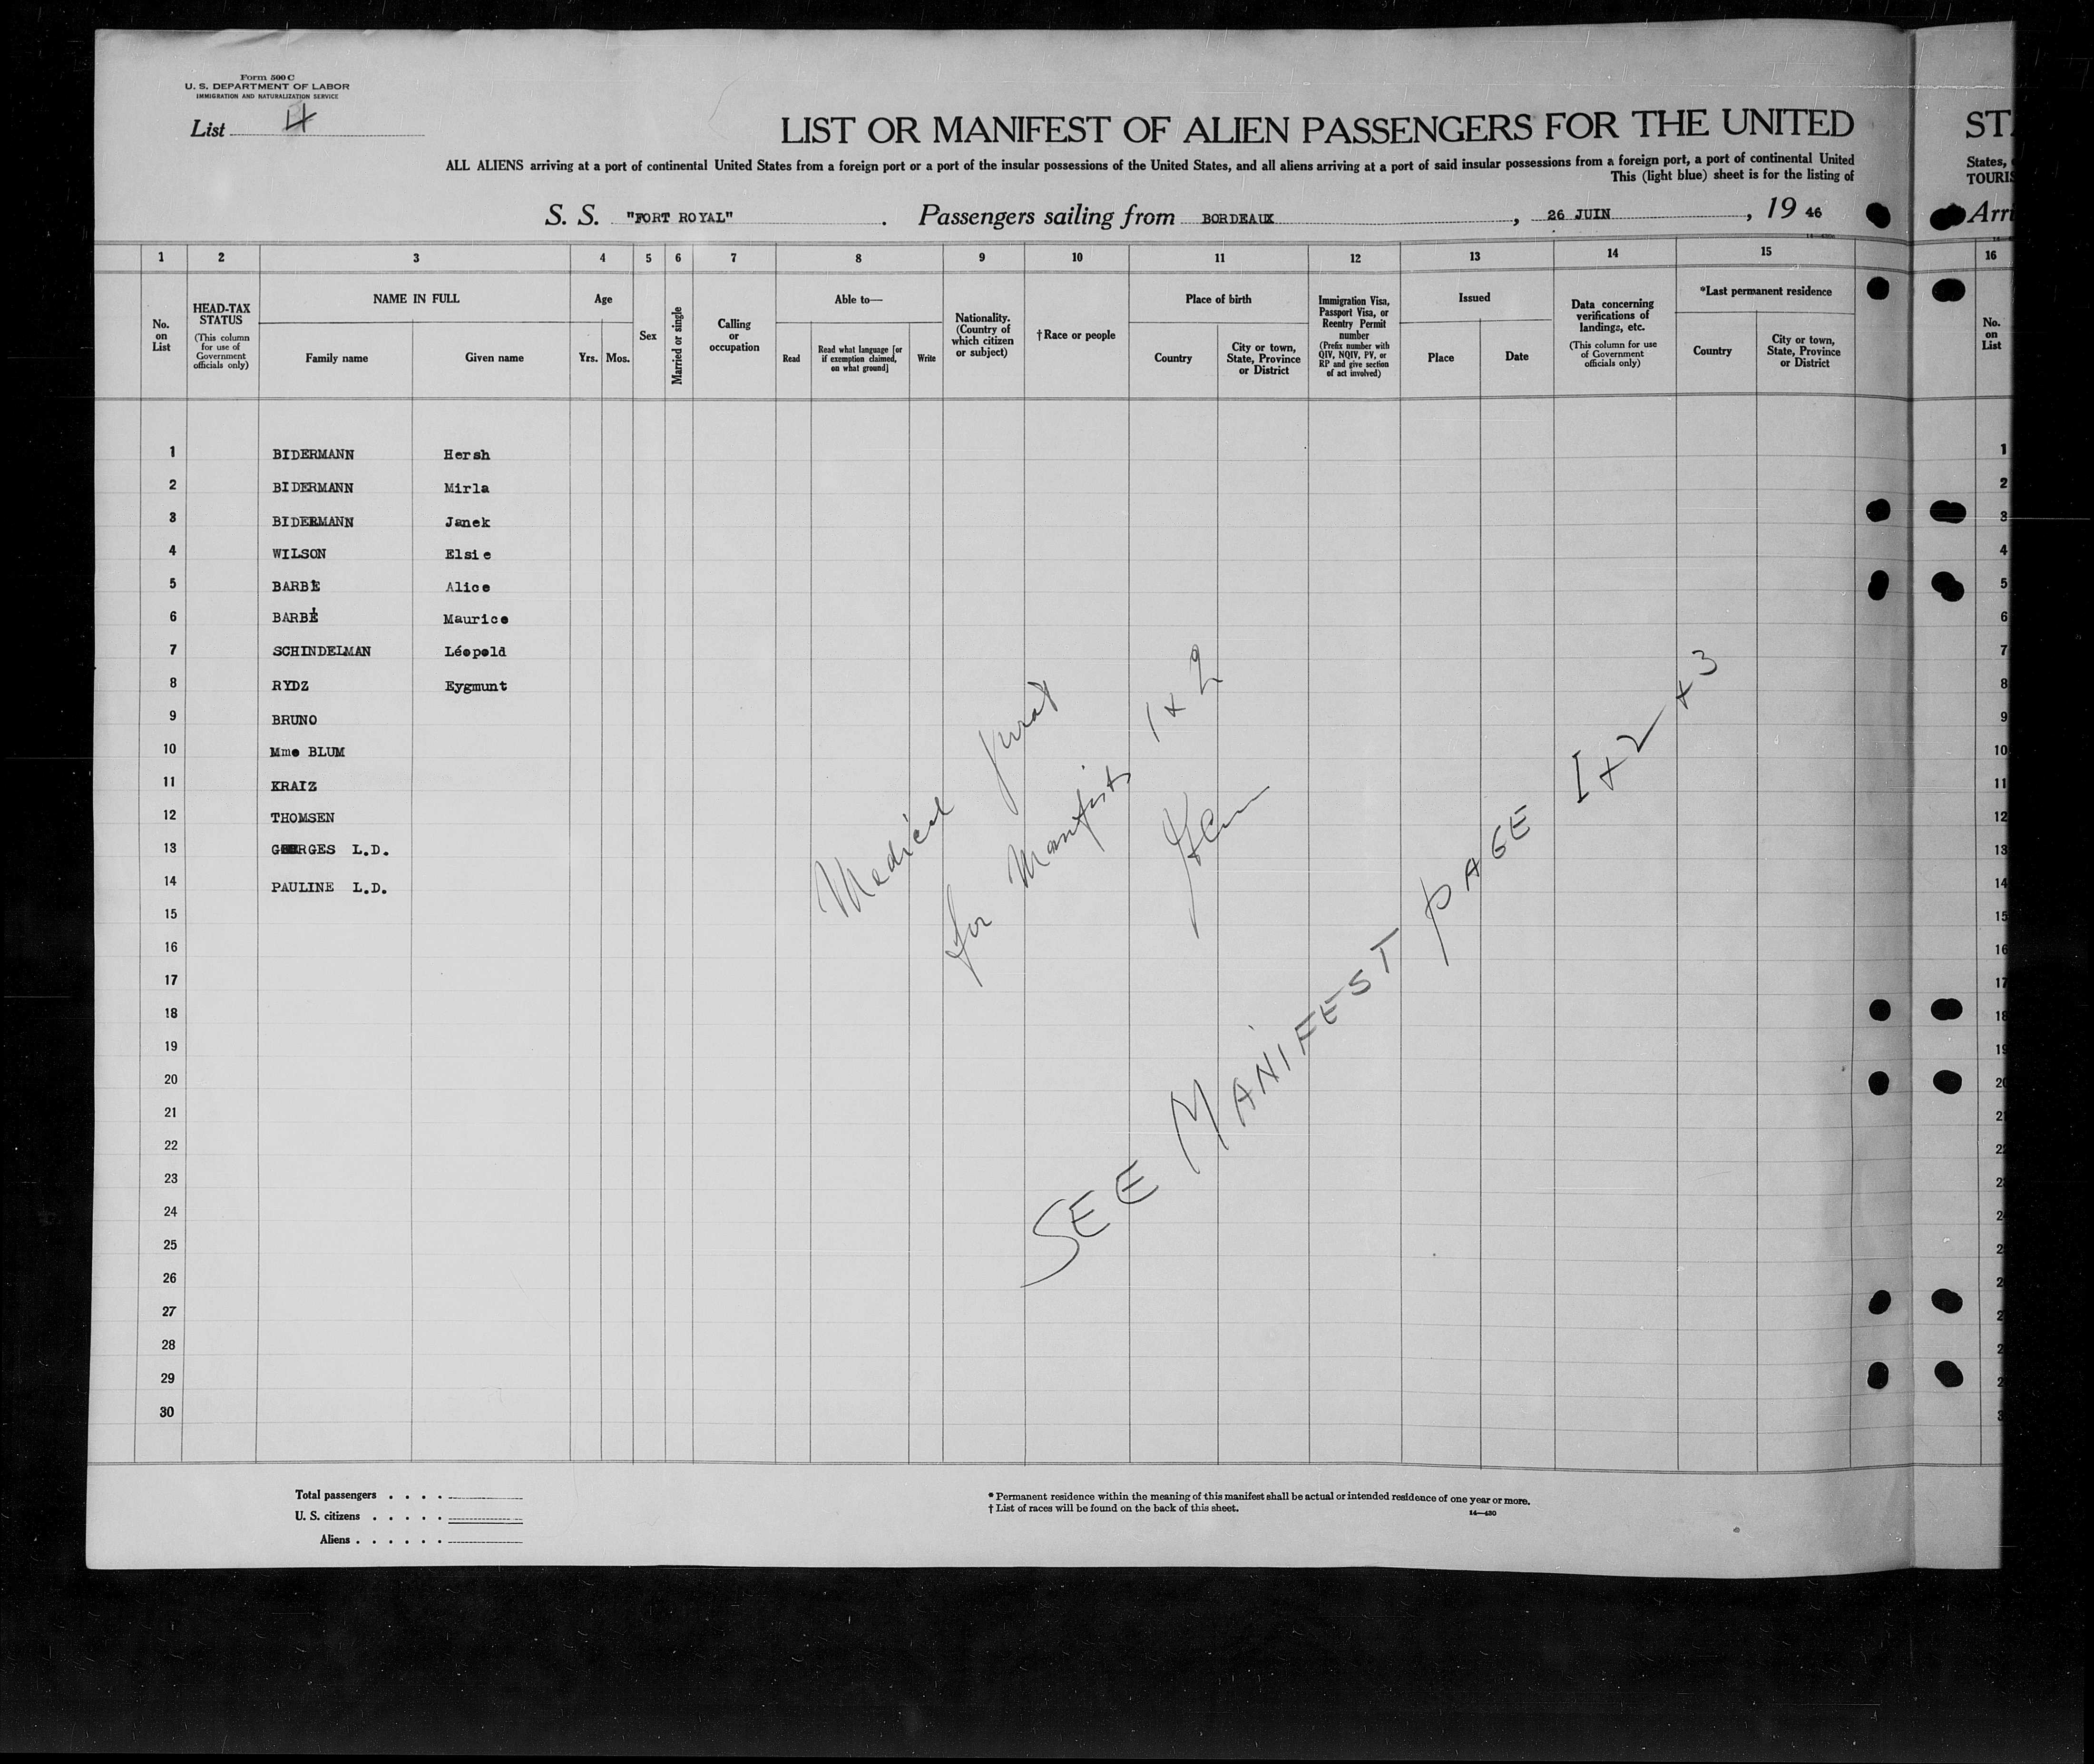 Form 500 C
U. S. DEPARTMENT OF LABOR
IMMIGRATION AND NATURALIZATION SERVICE
List 4
LIST OR MANIFEST OF ALIEN PASSENGERS FOR THE UNITED
ST
ALL ALIENS arriving at a port of continental United States from a foreign port or a port of the insular possessions of the United States, and all aliens arriving at a port of said insular possessions from a foreign port, a port of continental United
States,
This (light blue) sheet is for the listing of
TOURIS
S. S. "FORT ROYAL". Passengers sailing from BORDEAUX, 26 JUIN, 19 46
Arri
1 2 3 4 5 6 7 8 9 10 11 12 13 14 15 16
No. on List
HEAD-TAX STATUS (This column for use of Government officials only)
NAME IN FULL
Family name
Given name
Age
Yrs.
Mos.
Sex
Married or single
Calling or occupation
Able to—
Read
Read what language [or if exemption claimed, on what ground]
Write
Nationality. (Country of which citizen or subject)
†Race or people
Place of birth
Country
City or town, State, Province or District
Immigration Visa, Passport Visa, or Reentry Permit number (Prefix number with QIV, NQIV, PV, or RP and give section of act involved)
Issued
Place
Date
Data concerning verifications of landings, etc. (This column for use of Government officials only)
*Last permanent residence
Country
City or town, State, Province or District
No. on List
1 BIDERMANN Hersh 1
2 BIDERMANN Mirla 2
3 BIDERMANN Janek 3
4 WILSON Elsie 4
5 BARBE Alice 5
6 BARBÉ Maurice 6
7 SCHINDELMAN Léopold 7
8 RYDZ Eygmunt 8
9 BRUNO 9
10 Mme BLUM 10
11 KRAIZ 11
12 THOMSEN 12
13 GEORGES L.D. 13
14 PAULINE L.D. 14
15 15
16 16
17 17
18 18
19 19
20 20
21 21
22 22
23 23
24 24
25 25
26 2
27 2
28 2
29 2
30 3
Medical jurat
for Manifests 1 x 2
SEE MANIFEST PAGE 1 + 2 + 3
Total passengers . . . .
U. S. citizens . . . . .
Aliens . . . . . .
* Permanent residence within the meaning of this manifest shall be actual or intended residence of one year or more.
† List of races will be found on the back of this sheet.
14—430